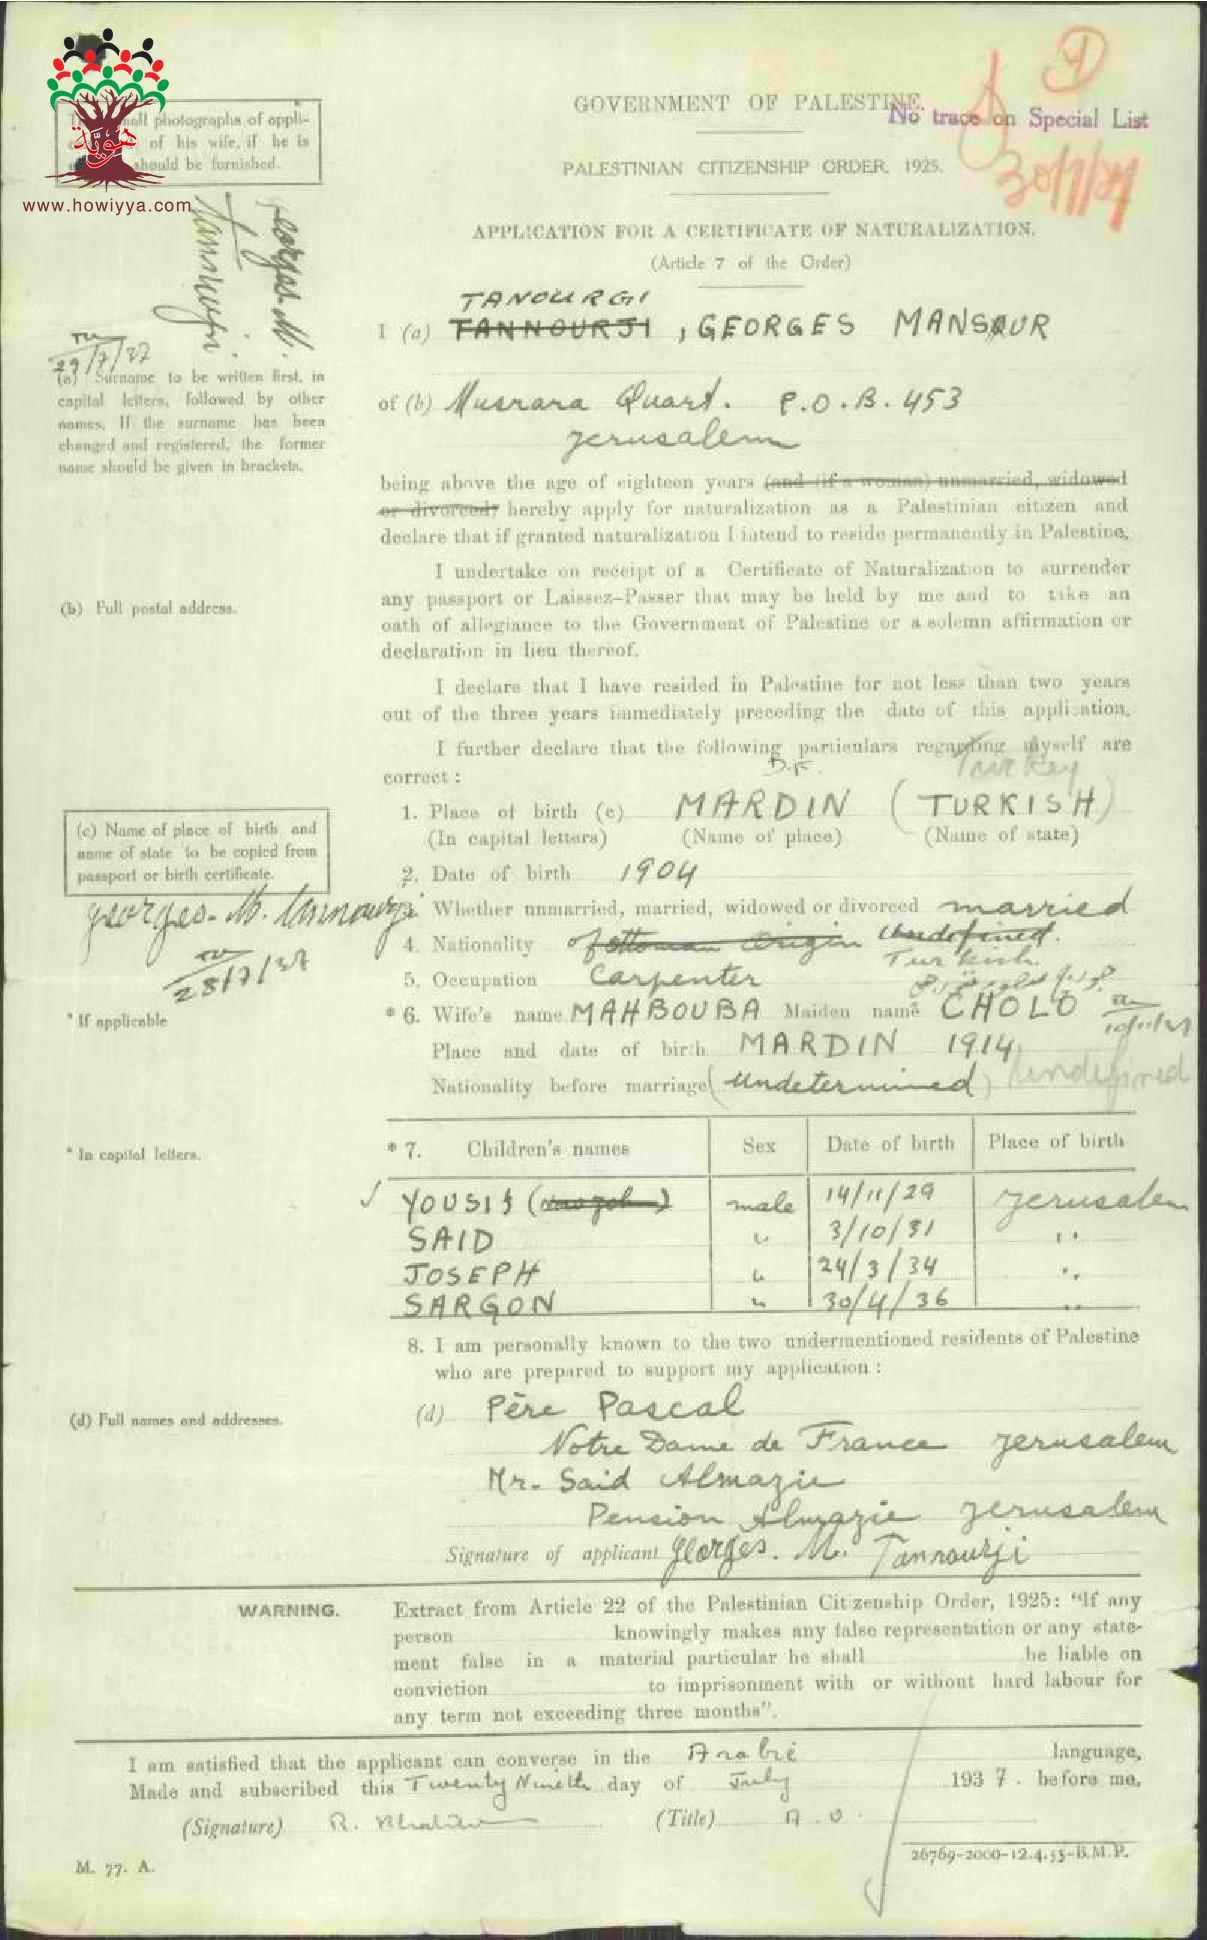 GOVERNMENT OF PALESTINE.
No trace on Special List
30/7/37
PALESTINIAN CITIZENSHIP ORDER, 1925.
APPLICATION FOR A CERTIFICATE OF NATURALIZATION.
(Article 7 of the Order)
all photographs of appli-
of his wife, if he is
should be furnished.
هوية
www.howiyya.com
Georges M.
Tannourji
29/7/37
(a) Surname to be written first, in
capital letters, followed by other
names. If the surname has been
changed and registered, the former
name should be given in brackets.
TANOURGI
I (a) TANNOURJI, GEORGES MANSOUR
of (b) Musrara Quart. P.O.B. 453
Jerusalem
being above the age of eighteen years (and (if a woman) unmarried, widowed
or divorced) hereby apply for naturalization as a Palestinian citizen and
declare that if granted naturalization I intend to reside permanently in Palestine.
I undertake on receipt of a Certificate of Naturalization to surrender
any passport or Laissez-Passer that may be held by me and to take an
oath of allegiance to the Government of Palestine or a solemn affirmation or
declaration in lieu thereof.
(b) Full postal address.
I declare that I have resided in Palestine for not less than two years
out of the three years immediately preceding the date of this application.
I further declare that the following particulars regarding myself are
correct :
Turkey
(c) Name of place of birth and
name of state to be copied from
passport or birth certificate.
1. Place of birth (c) MARDIN (TURKISH)
(In capital letters) (Name of place) (Name of state)
2. Date of birth 1904
georges. M. Tannourji
29/7/37
3. Whether unmarried, married, widowed or divorced married
4. Nationality of ottoman origin Undefined.
Turkish.
5. Occupation Carpenter
* If applicable
* 6. Wife's name MAHBOUBA Maiden name CHOLO
Place and date of birth MARDIN 1914
Nationality before marriage (Undetermined) Undefined
* In capital letters.
* 7. Children's names Sex Date of birth Place of birth
YOUSIF male 14/11/29 Jerusalem
SAID " 3/10/31 "
JOSEPH " 24/3/34 "
SARGON " 30/4/36 "
8. I am personally known to the two undermentioned residents of Palestine
who are prepared to support my application :
(d) Full names and addresses.
(d) Père Pascal
Notre Dame de France Jerusalem
Mr. Said Almazie
Pension Almazie Jerusalem
Signature of applicant georges. M. Tannourji
WARNING.
Extract from Article 22 of the Palestinian Citizenship Order, 1925: "If any
person knowingly makes any false representation or any state-
ment false in a material particular he shall be liable on
conviction to imprisonment with or without hard labour for
any term not exceeding three months".
I am satisfied that the applicant can converse in the Arabic language,
Made and subscribed this Twenty Nineth day of July 1937. before me.
(Signature) R. (Title) A.O.
M. 77. A.
26769-2000-12.4.35-B.M.P.